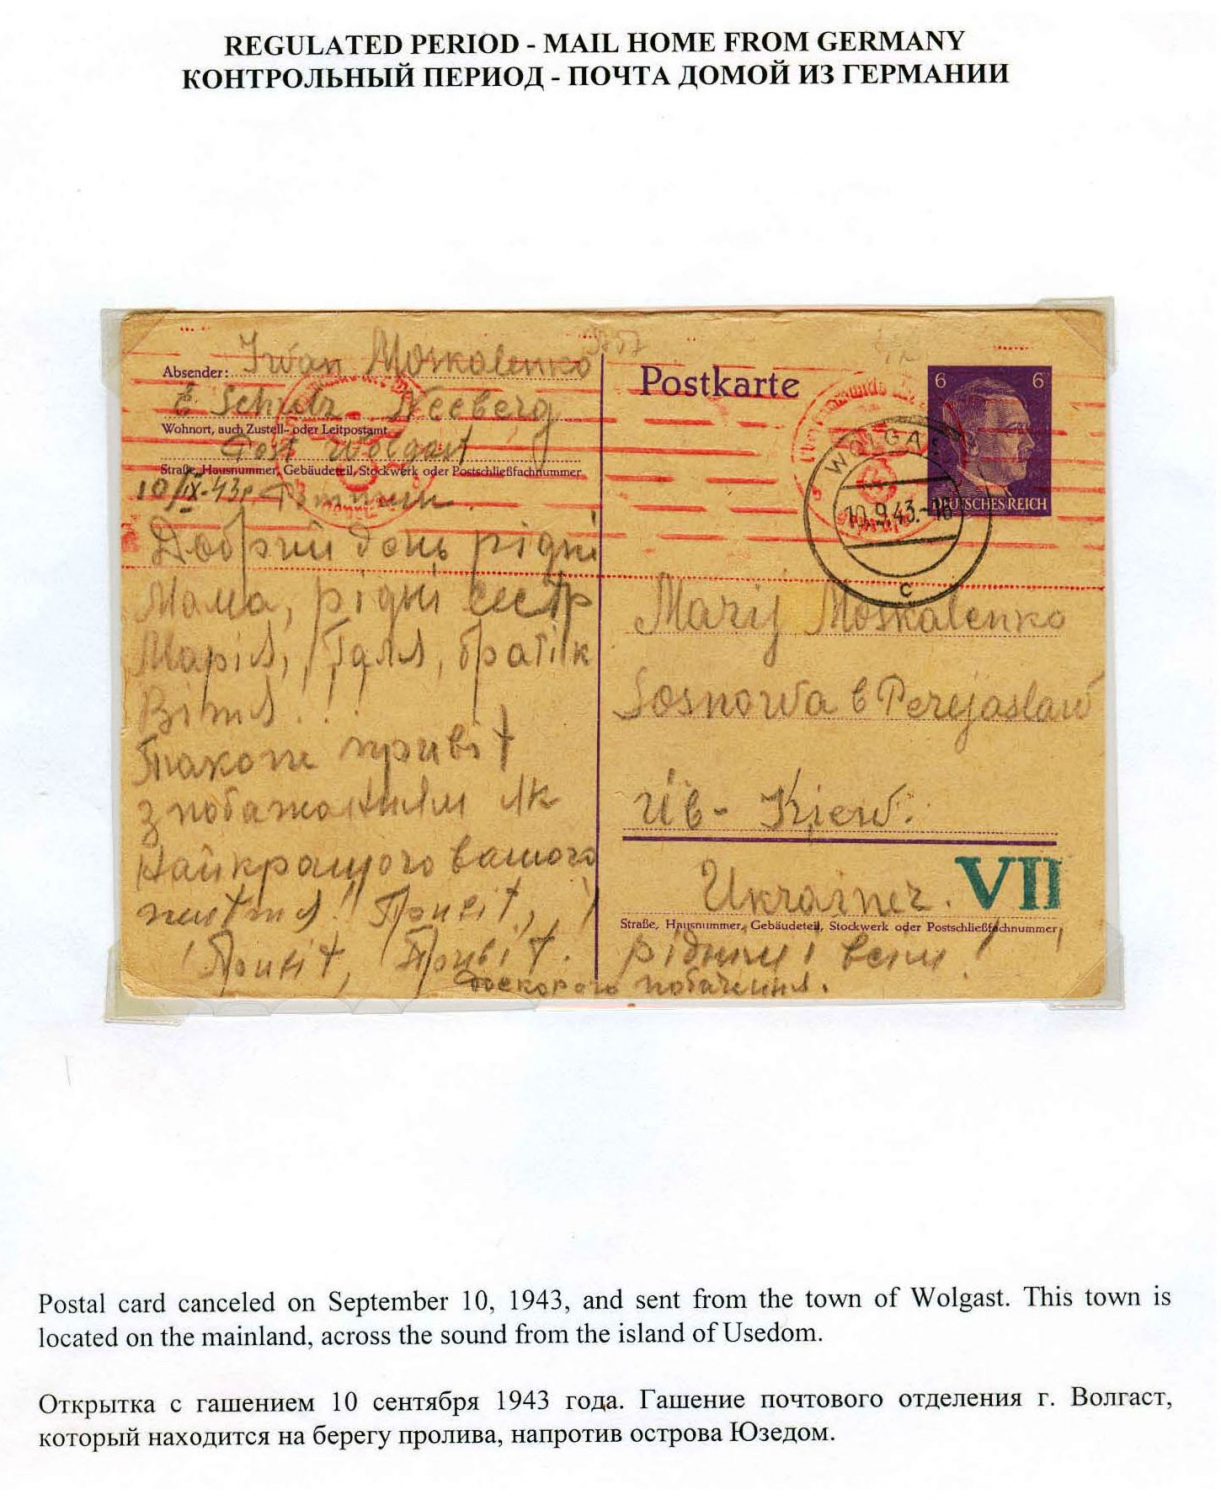 REGULATED PERIOD - MAIL HOME FROM GERMANY
КОНТРОЛЬНЫЙ ПЕРИОД - ПОЧТА ДОМОЙ ИЗ ГЕРМАНИИ
Absender: Iwan Moskalenko
E Schulz Neeberg
Wohnort, auch Zustell- oder Leitpostamt
Post Wolgast
Straße, Hausnummer, Gebäudeteil, Stockwerk oder Postschließfachnummer
10/IX-43р
Добрий день рідні
Мама, рідні сестр
Марія, Галя, братік
Вітя!
Також привіт
з побажанням як
найкращого вашого
життя! Привіт,
Привіт, Привіт.
Postkarte
6 6
DEUTSCHES REICH
WOLGAST
10.9.43.-18
c
Marij Moskalenko
Sosnowa b Perejaslaw
Üb- Kiew.
Ukrainer.
VII
Straße, Hausnummer, Gebäudeteil, Stockwerk oder Postschließfachnummer
рідним і всім!
До скорого побачення.
Postal card canceled on September 10, 1943, and sent from the town of Wolgast. This town is
located on the mainland, across the sound from the island of Usedom.
Открытка с гашением 10 сентября 1943 года. Гашение почтового отделения г. Волгаст,
который находится на берегу пролива, напротив острова Юзедом.